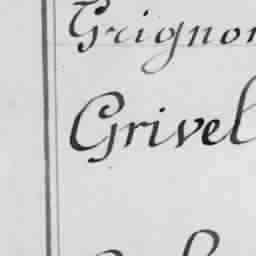 Grignon
Grivel